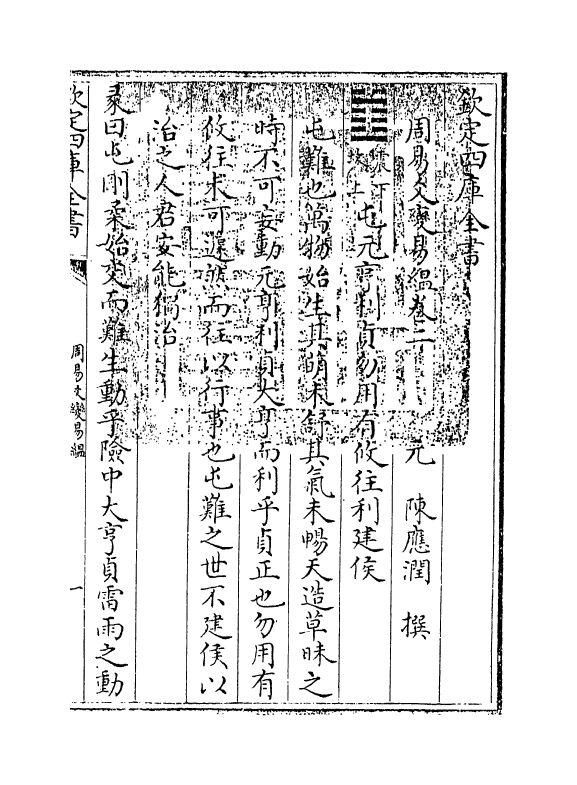 欽定四庫全書
周易爻變易緼卷二
元 陳應潤 撰
震下坎上 屯元亨利貞勿用有攸往利建侯
屯難也萬物始生其萌未舒其氣未暢天造草昧之
時不可妄動元亨利貞大亨而利乎貞正也勿用有
攸往未可遽然而往以行事也屯難之世不建侯以
治之人君安能獨治
彖曰屯剛柔始交而難生動乎險中大亨貞雷雨之動
欽定四庫全書
周易爻變易緼
一